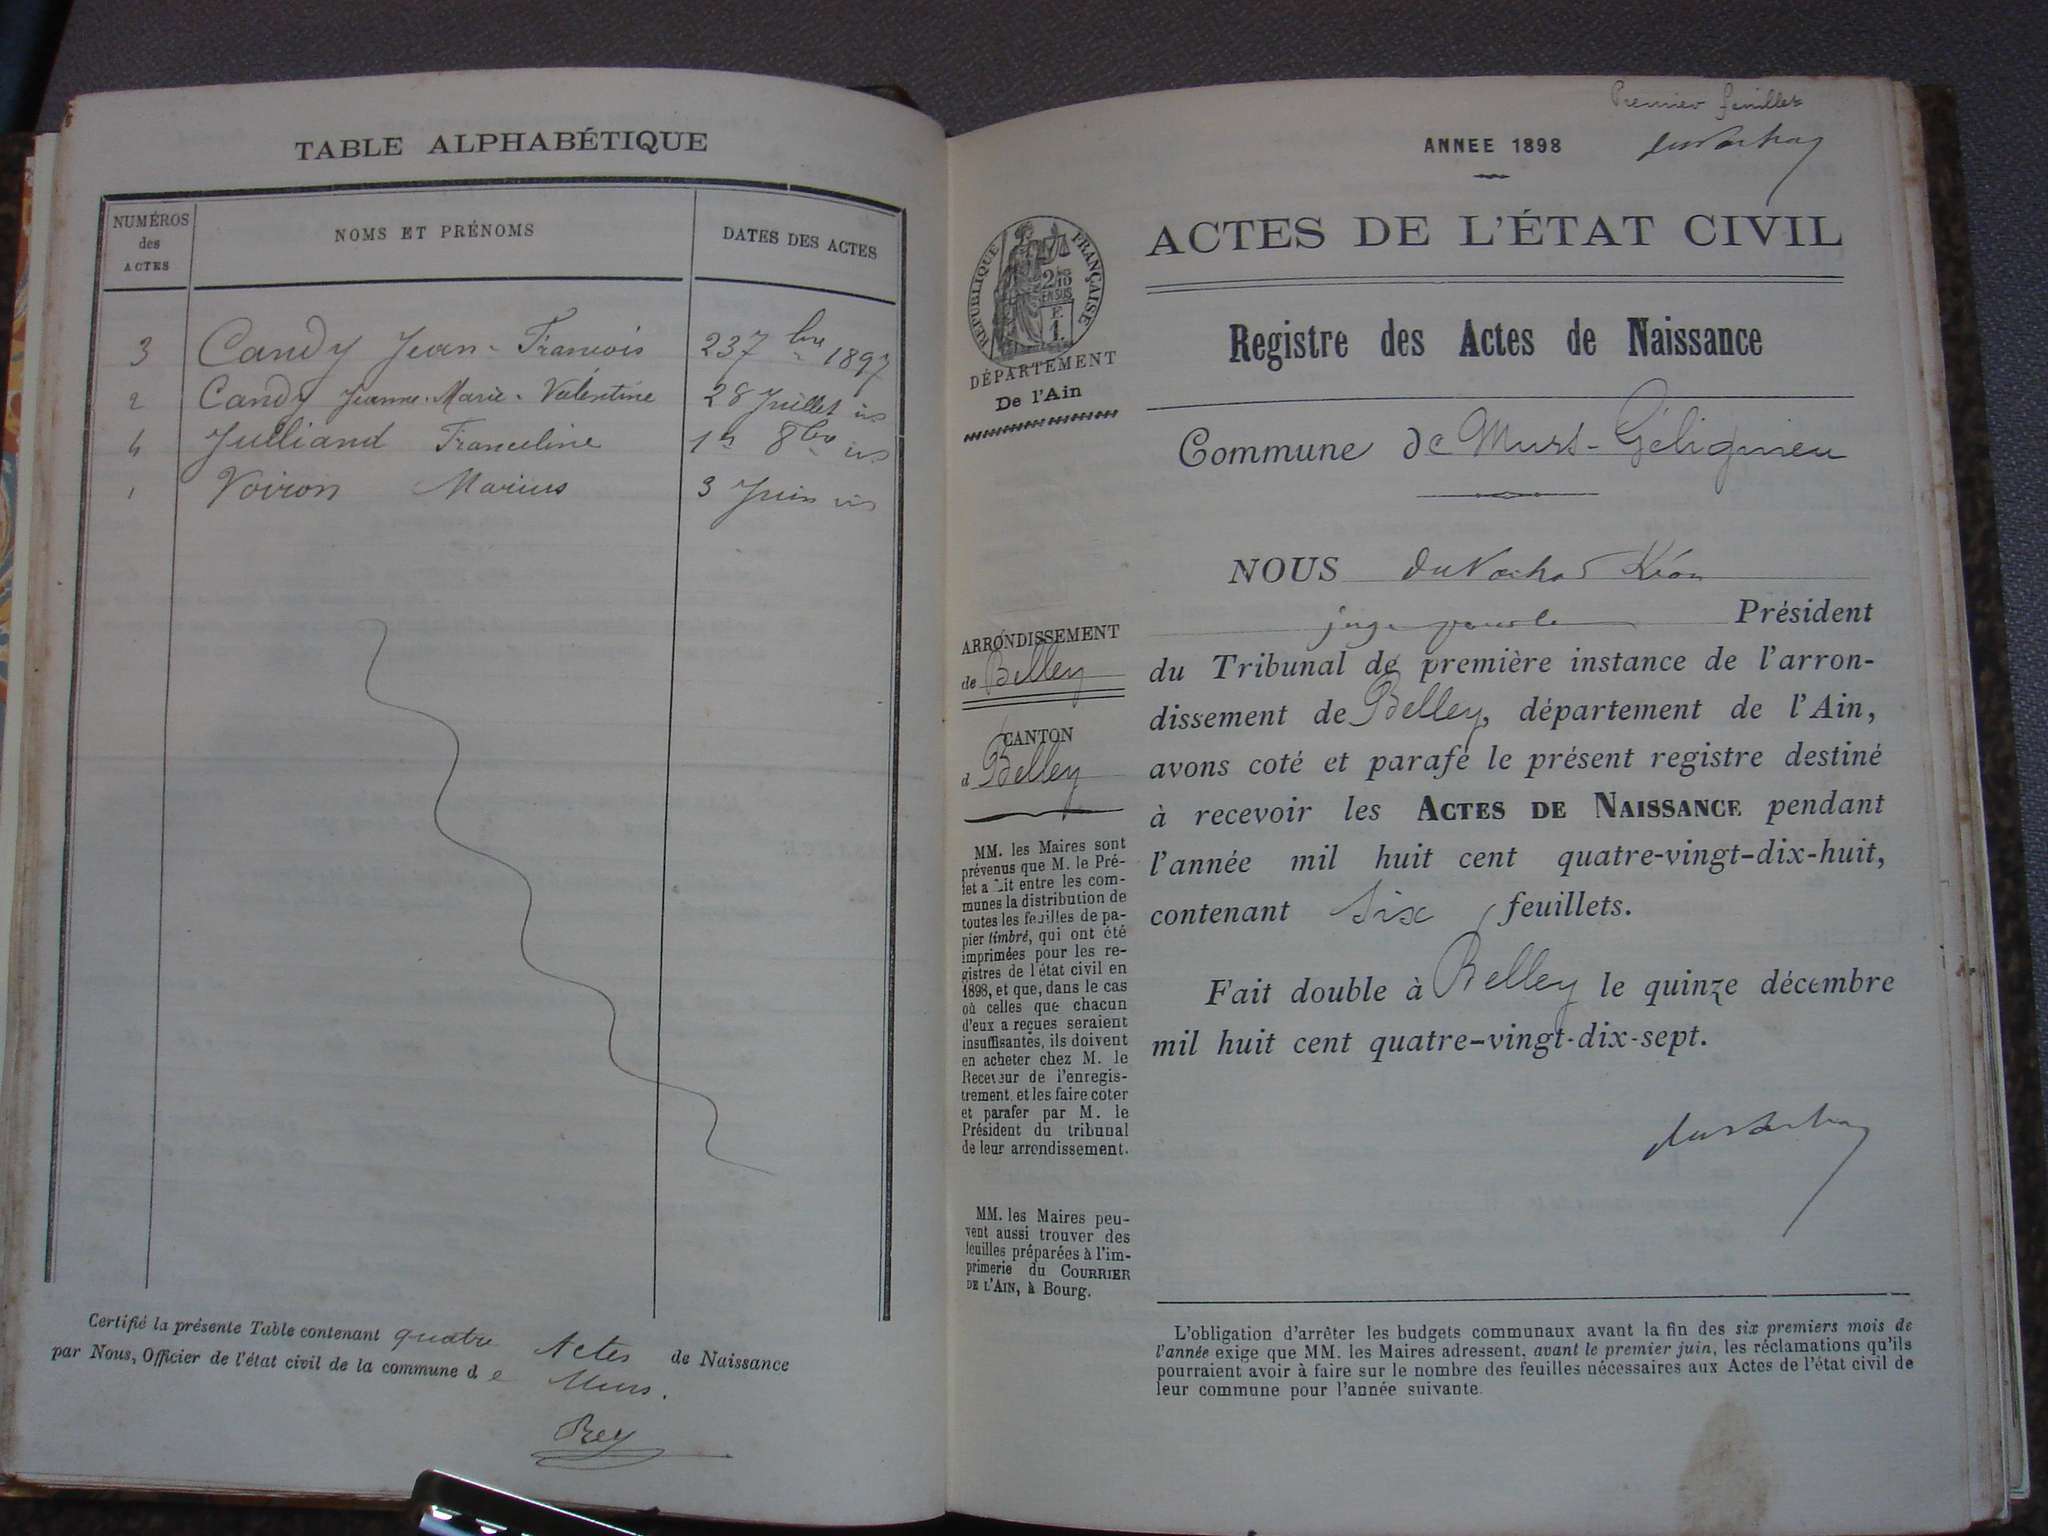 TABLE ALPHABÉTIQUE
NUMÉROS
des
ACTES
NOMS ET PRÉNOMS
DATES DES ACTES
3 Candy Jean-Francois 23 7bre 1897
2 Candy Jeanne-Marie-Valentine 28 Juillet
4 Julliand Franceline 1er 8bre
1 Voiron Marius 3 Juin
Certifié la présente Table contenant quatre Actes de Naissance
par Nous, Officier de l'état civil de la commune de Murs.
Rey
Premier feuillet
ANNEE 1898
ACTES DE L'ÉTAT CIVIL
RÉPUBLIQUE FRANÇAISE
DÉPARTEMENT
De l'Ain
Registre des Actes de Naissance
Commune de Murs-Gélignieu
ARRONDISSEMENT
de Belley
CANTON
d Belley
MM. les Maires sont
prévenus que M. le Pré-
fet a fait entre les com-
munes la distribution de
toutes les feuilles de pa-
pier timbré, qui ont été
imprimées pour les re-
gistres de l'état civil en
1898, et que, dans le cas
où celles que chacun
d'eux a reçues seraient
insuffisantes, ils doivent
en acheter chez M. le
Receveur de l'enregis-
trement, et les faire coter
et parafer par M. le
Président du tribunal
de leur arrondissement.
MM. les Maires peu-
vent aussi trouver des
feuilles préparées à l'im-
primerie du COURRIER
DE L'AIN, à Bourg.
NOUS
Président
du Tribunal de première instance de l'arron-
dissement de Belley, département de l'Ain,
avons coté et parafé le présent registre destiné
à recevoir les ACTES DE NAISSANCE pendant
l'année mil huit cent quatre-vingt-dix-huit,
contenant six feuillets.
Fait double à Belley le quinze décembre
mil huit cent quatre-vingt-dix-sept.
L'obligation d'arrêter les budgets communaux avant la fin des six premiers mois de
l'année exige que MM. les Maires adressent, avant le premier juin, les réclamations qu'ils
pourraient avoir à faire sur le nombre des feuilles nécessaires aux Actes de l'état civil de
leur commune pour l'année suivante.